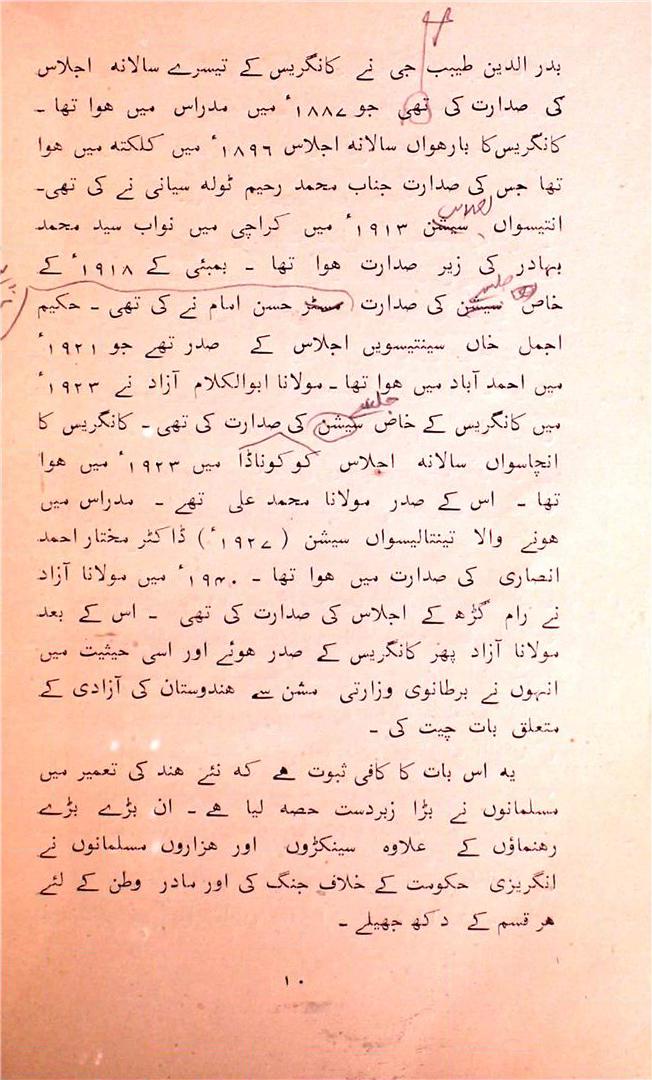 بدر الدین طیبب جی نے کانگریس کے تیسرے سالانہ اجلاس
کی صدارت کی تھی جو ۱۸۸۷ء میں مدراس میں ہوا تھا ۔
کانگریس کا بارھواں سالانہ اجلاس ۱۸۹۶ء میں کلکتہ میں ہوا
تھا جس کی صدارت جناب محمد رحیم ٹولہ سیانی نے کی تھی۔
اجلاس
انتیسواں سیشن ۱۹۱۳ء میں کراچی میں نواب سید محمد
بہادر کی زیر صدارت ہوا تھا ۔ بمبئی کے ۱۹۱۸ء کے
جلسے
خاص سیشن کی صدارت مسٹر حسن امام نے کی تھی ۔ حکیم
اجمل خاں سینتیسویں اجلاس کے صدر تھے جو ۱۹۲۱ء
میں احمد آباد میں ہوا تھا ۔ مولانا ابوالکلام آزاد نے ۱۹۲۳ء
جلسے
میں کانگریس کے خاص سیشن کی صدارت کی تھی ۔ کانگریس کا
انچاسواں سالانہ اجلاس کوکوناڈا میں ۱۹۲۳ء میں ہوا
تھا ۔ اس کے صدر مولانا محمد علی تھے ۔ مدراس میں
ہونے والا تینتالیسواں سیشن (۱۹۲۷ء) ڈاکٹر مختار احمد
انصاری کی صدارت میں ہوا تھا ۔ ۱۹۴۰ء میں مولانا آزاد
نے رام گڑھ کے اجلاس کی صدارت کی تھی ۔ اس کے بعد
مولانا آزاد پھر کانگریس کے صدر ہوئے اور اسی حیثیت میں
انہوں نے برطانوی وزارتی مشن سے ہندوستان کی آزادی کے
متعلق بات چیت کی ۔
یہ اس بات کا کافی ثبوت ہے کہ نئے ہند کی تعمیر میں
مسلمانوں نے بڑا زبردست حصہ لیا ہے ۔ ان بڑے بڑے
رہنماؤں کے علاوہ سینکڑوں اور ہزاروں مسلمانوں نے
انگریزی حکومت کے خلاف جنگ کی اور مادر وطن کے لئے
ہر قسم کے دکھ جھیلے ۔
۱۰